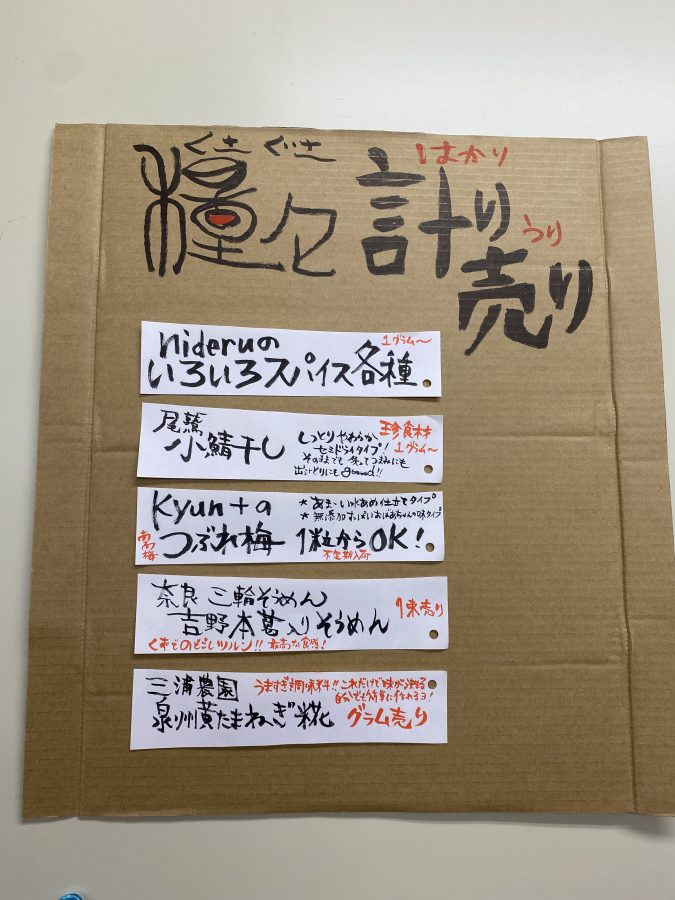 くさぐさ
種々
はかり
計り
うり
売り
nideruの 1グラム〜
いろいろスパイス各種
尾鷲 珍食材
小鯖干し 1グラム〜
しっとりやわらか
セミドライタイプ!
そのままでも 炙ってつまみにも
出汁とりにも good!!
Kyunta
つぶれ梅 1粒からOK!
南高梅
★あま〜い水あめ仕立てタイプ
★無添加すっぱいおばあちゃんの味タイプ
不定期入荷
奈良 三輪そうめん
吉野本葛入りそうめん
1束売り
くずでのどごしツルン!! 最高な食感!
三浦農園
泉州黄たまねぎ糀
うますぎる調味料!! これだけで味が決まる
自分でも簡単に作れるヨ!
グラム売り